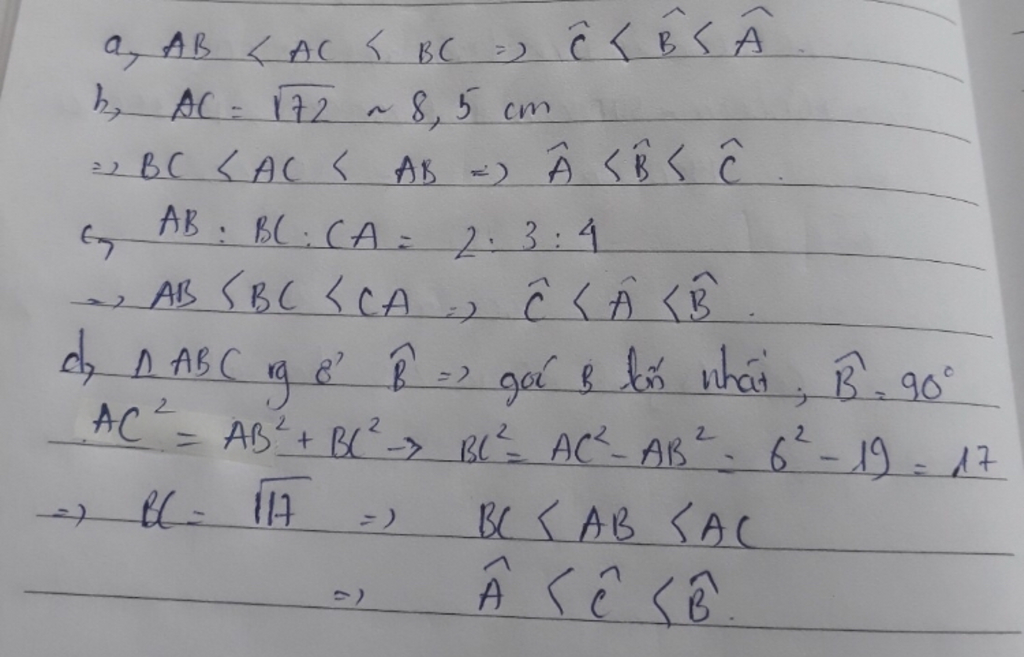 a, AB < AC < BC => Ĉ < B̂ < Â.
b, AC = √72 ~ 8,5 cm
=> BC < AC < AB => Â < B̂ < Ĉ.
c, AB : BC : CA = 2 : 3 : 4
=> AB < BC < CA => Ĉ < Â < B̂.
d, Δ ABC vg ở B̂ => góc B lớn nhất, B̂ = 90°
AC² = AB² + BC² -> BC² = AC² - AB² = 6² - 19 = 17
=> BC = √17 => BC < AB < AC
=> Â < Ĉ < B̂.